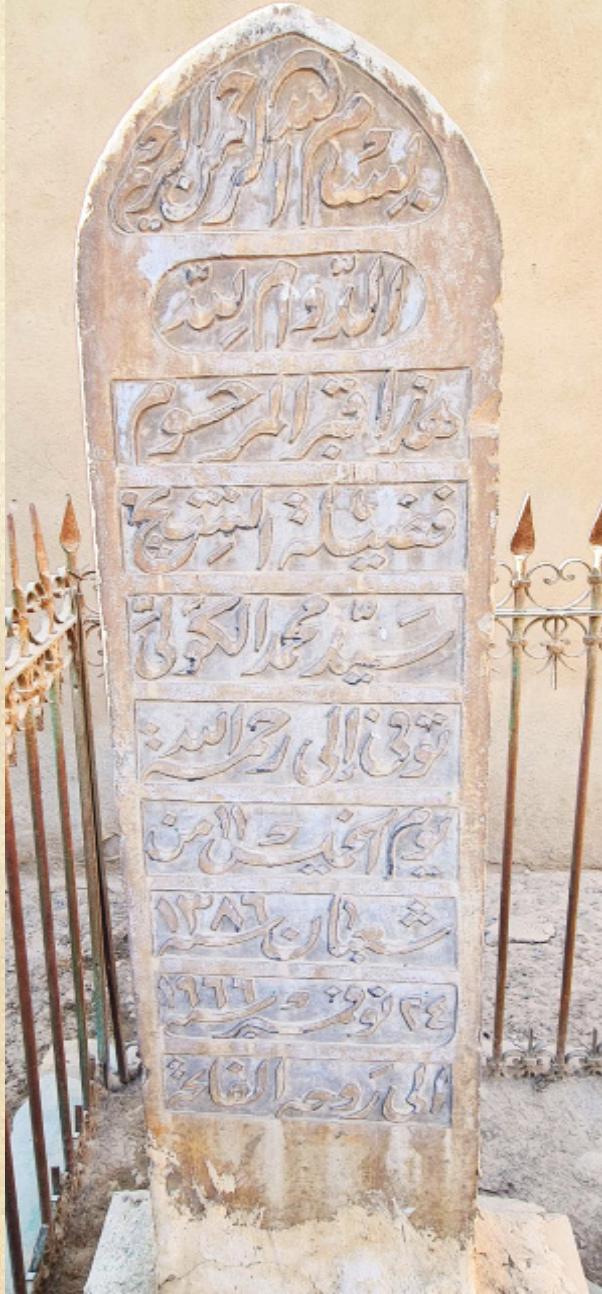 بسم الله الرحمن الرحيم
الدَّوام لِلّه
هذا قبر المرحوم
فضيلة الشيخ
سَيِّد محمد الكَوَلِيّ
توفي إلى رحمة الله
يوم الخميس ١١ من
شعبان سنة ١٣٨٦
٢٤ نوفمبر سنة ١٩٦٦
الى رَوحه الفاتحة